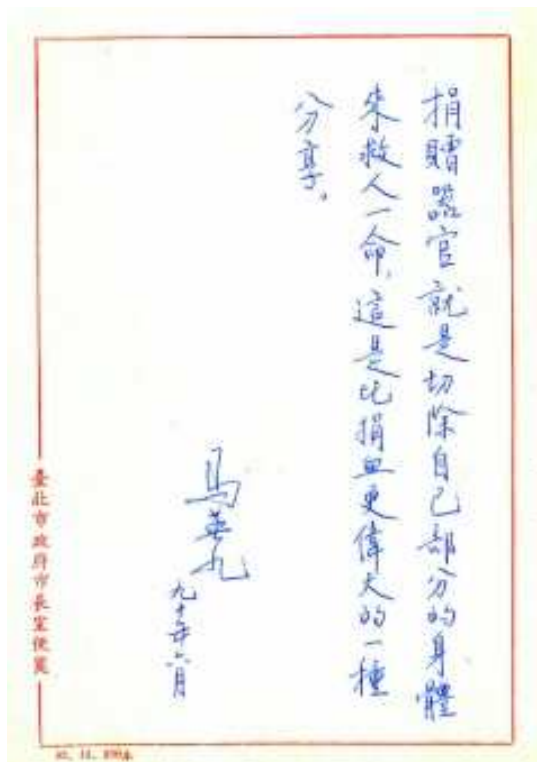 捐贈器官就是切除自己部分的身體
來救人一命，這是比捐血更偉大的一種
分享。
馬英九
九十年六月
臺北市政府市長室便箋